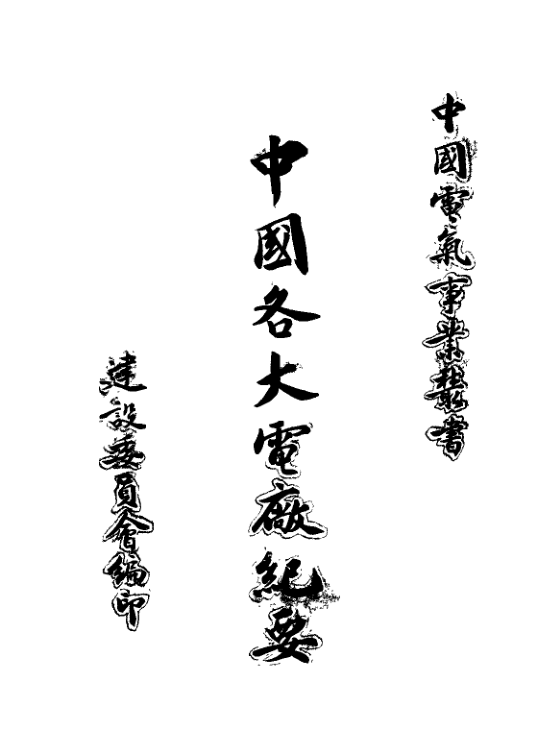 中國電氣事業叢書
中國各大電廠紀要
建設委員會編印